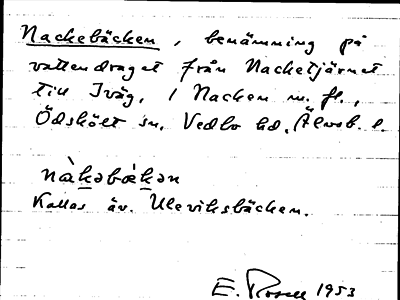 Nackebäcken, benämning på
vattendraget från Nacketjärnet
till Iväg, i Nacken m. fl.,
Ödskölt sn. Vedbo hd. Älvsb. l.
nàkəbækən
Kallas äv. Uleviksbäcken.
E. Rosell 1953